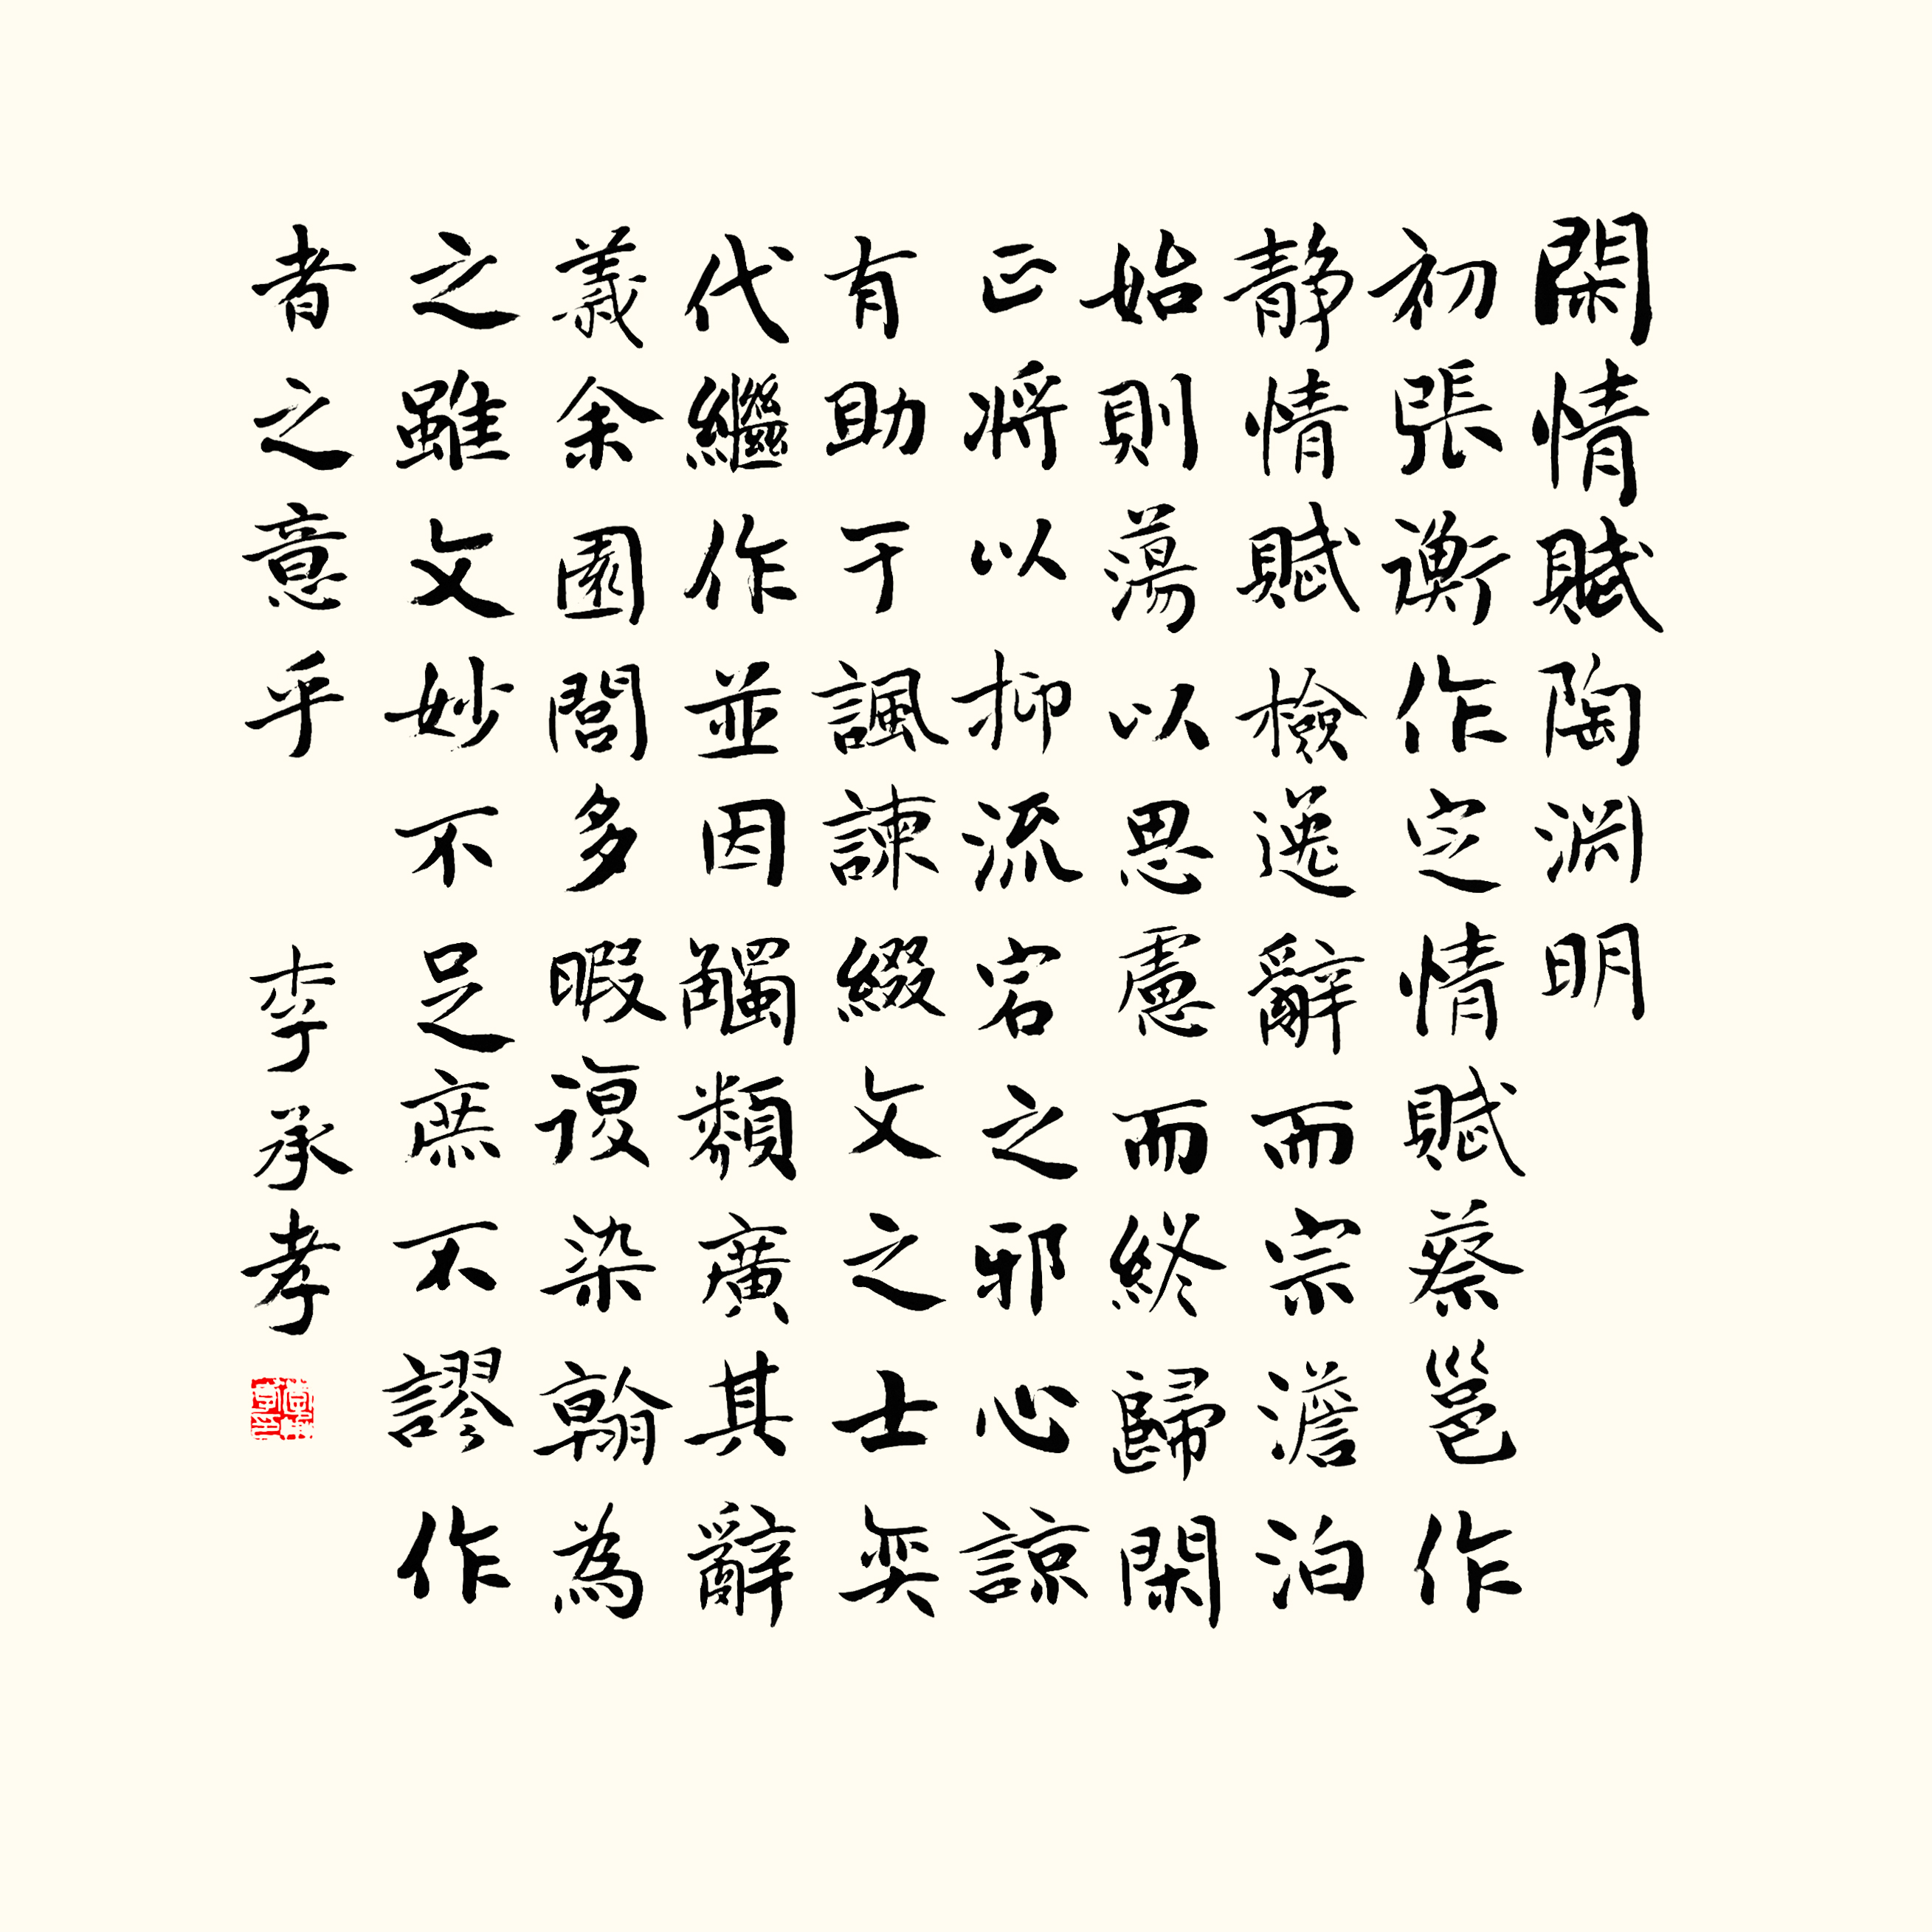 閑情賦陶淵明
初張衡作定情賦蔡邕作
靜情賦檢逸辭而宗澹泊
始則蕩以思慮而終歸閑
正將以抑流宕之邪心諒
有助于諷諫綴文之士奕
代繼作並因觸類廣其辭
義余園閭多暇復染翰為
之雖文妙不足庶不謬作
者之意乎
李承孝